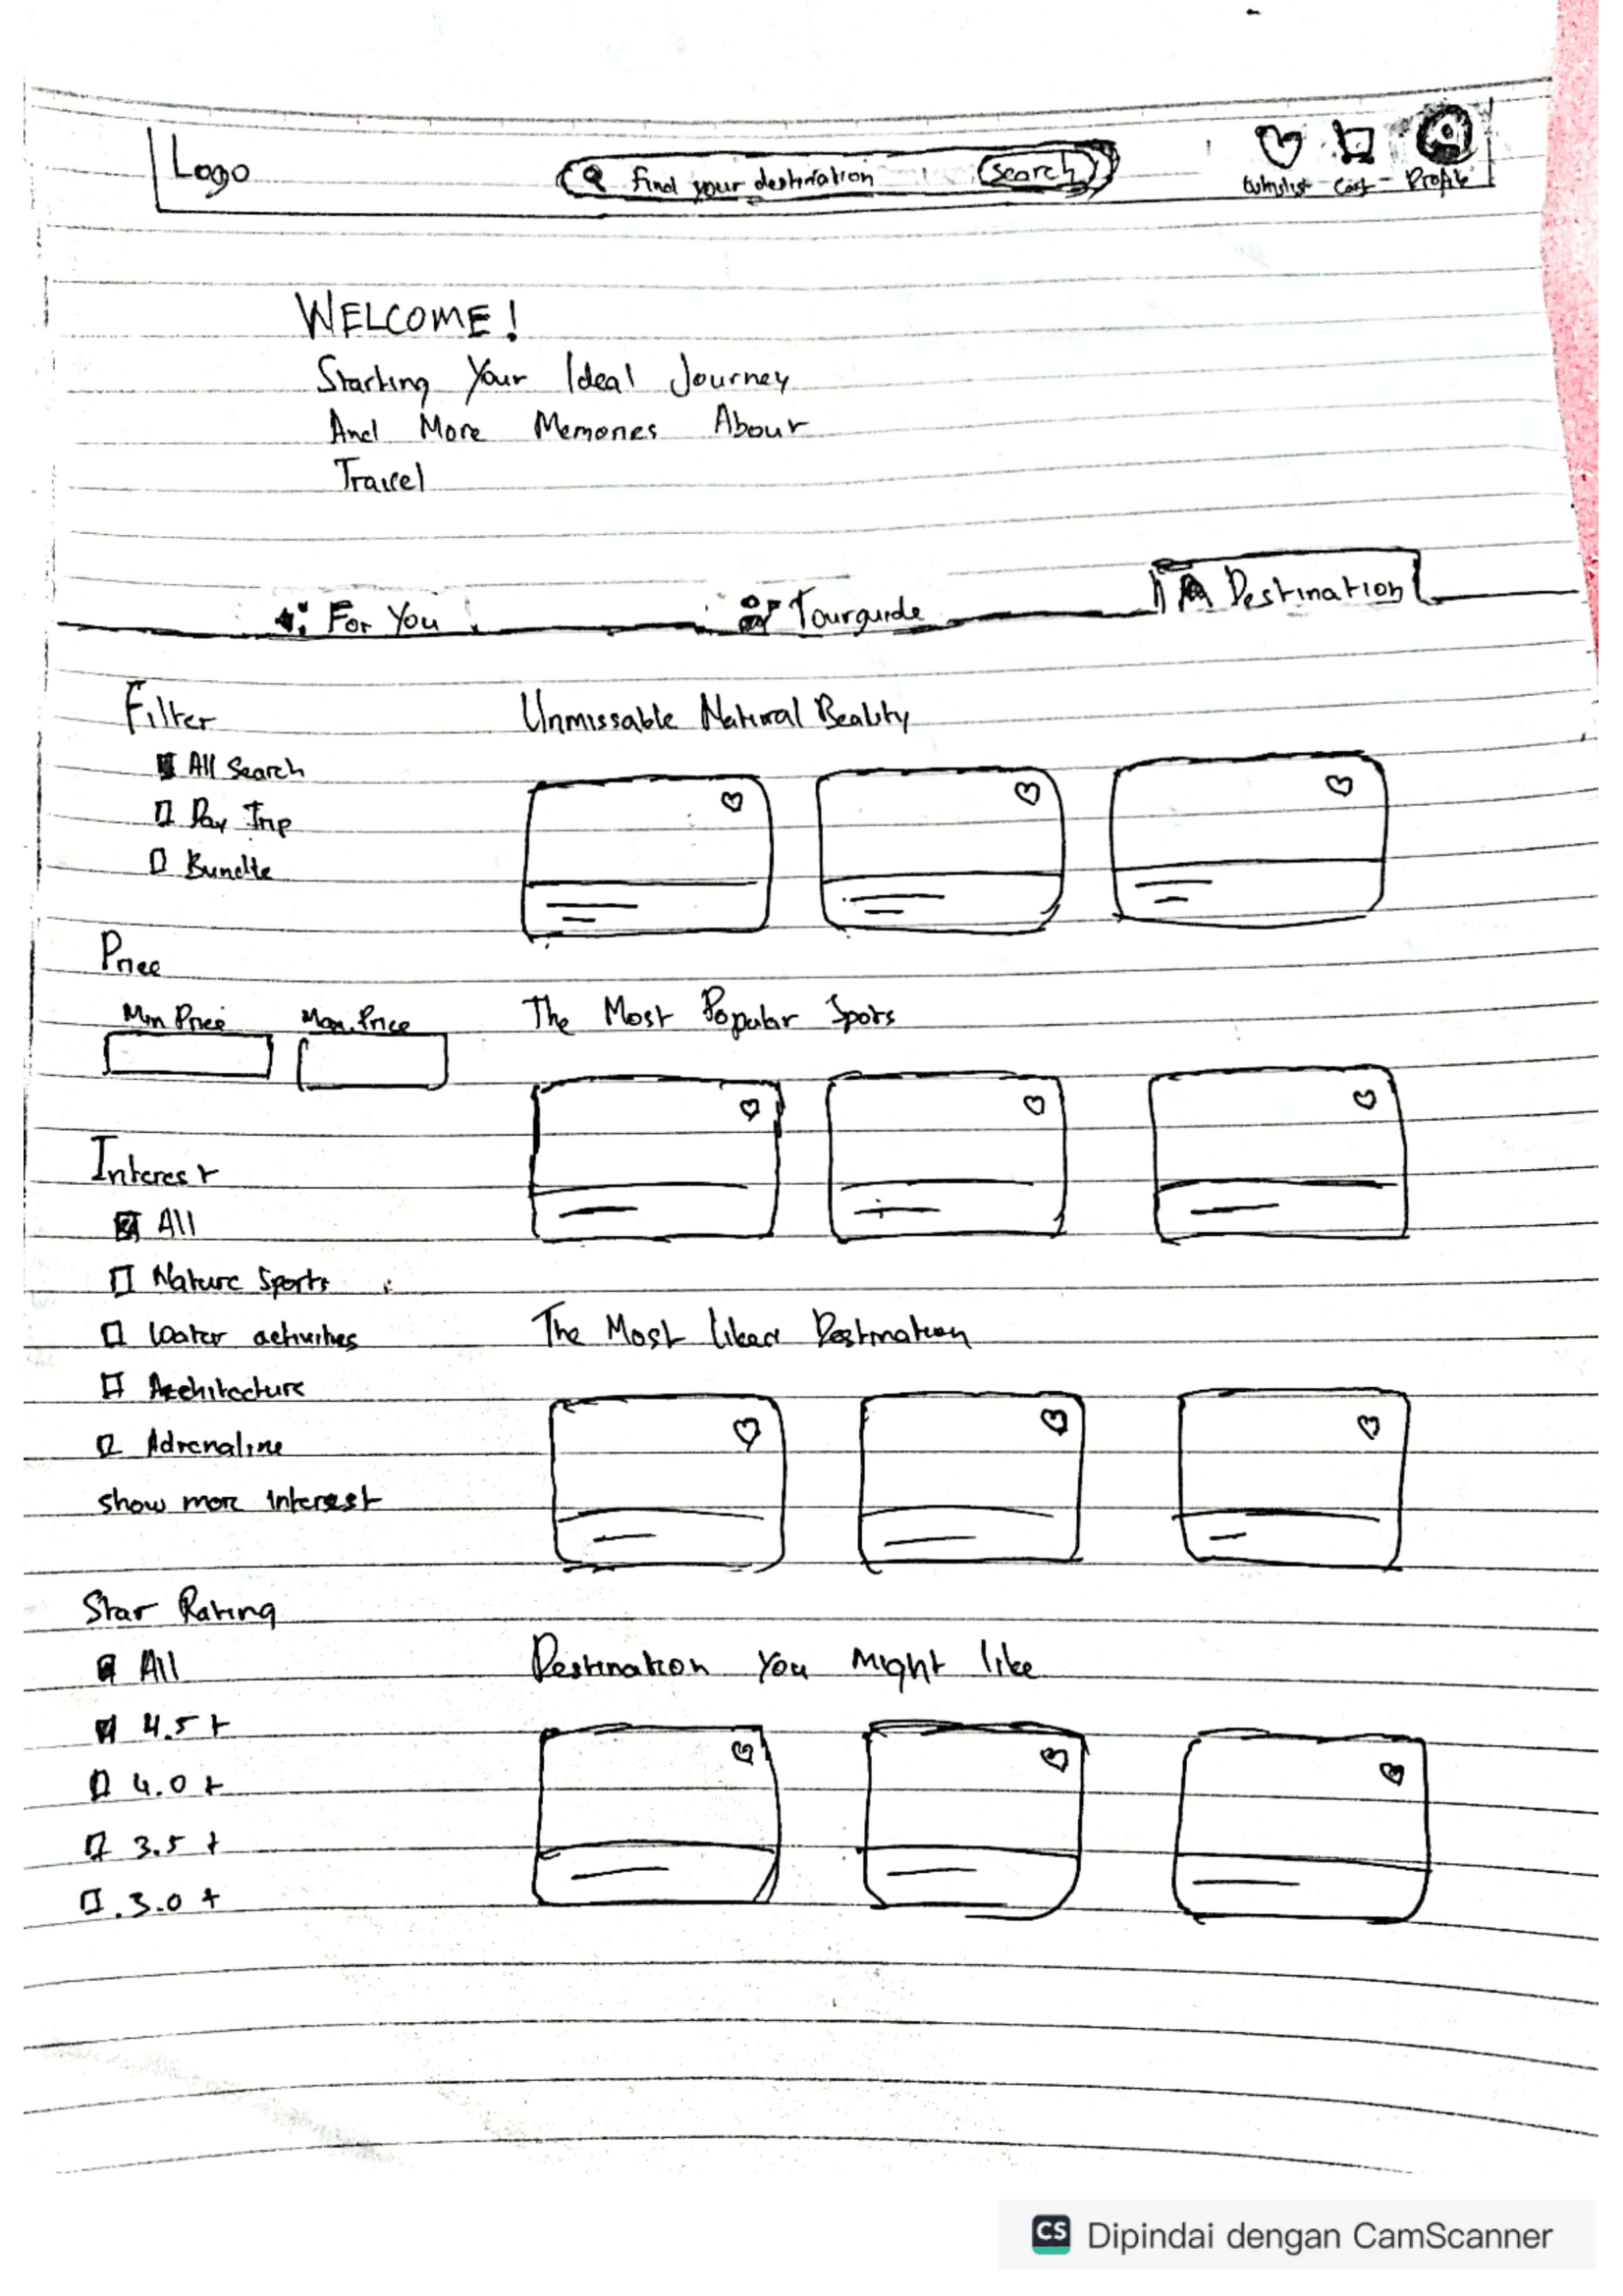 Logo
Find your destination
search
Wishlist Cart Profile
WELCOME!
Starting Your Ideal Journey
And More Memories About
Travel
For You
Tourguide
Destination
Filter
All Search
Day Trip
Bundle
Price
Min Price
Max. Price
Interest
All
Nature Sports
Water activities
Architecture
Adrenaline
show more interest
Star Rating
All
4.5 +
4.0 +
3.5 +
3.0 +
Unmissable Natural Beality
The Most Popular Spots
The Most liked Destination
Destination You Might like
CS Dipindai dengan CamScanner